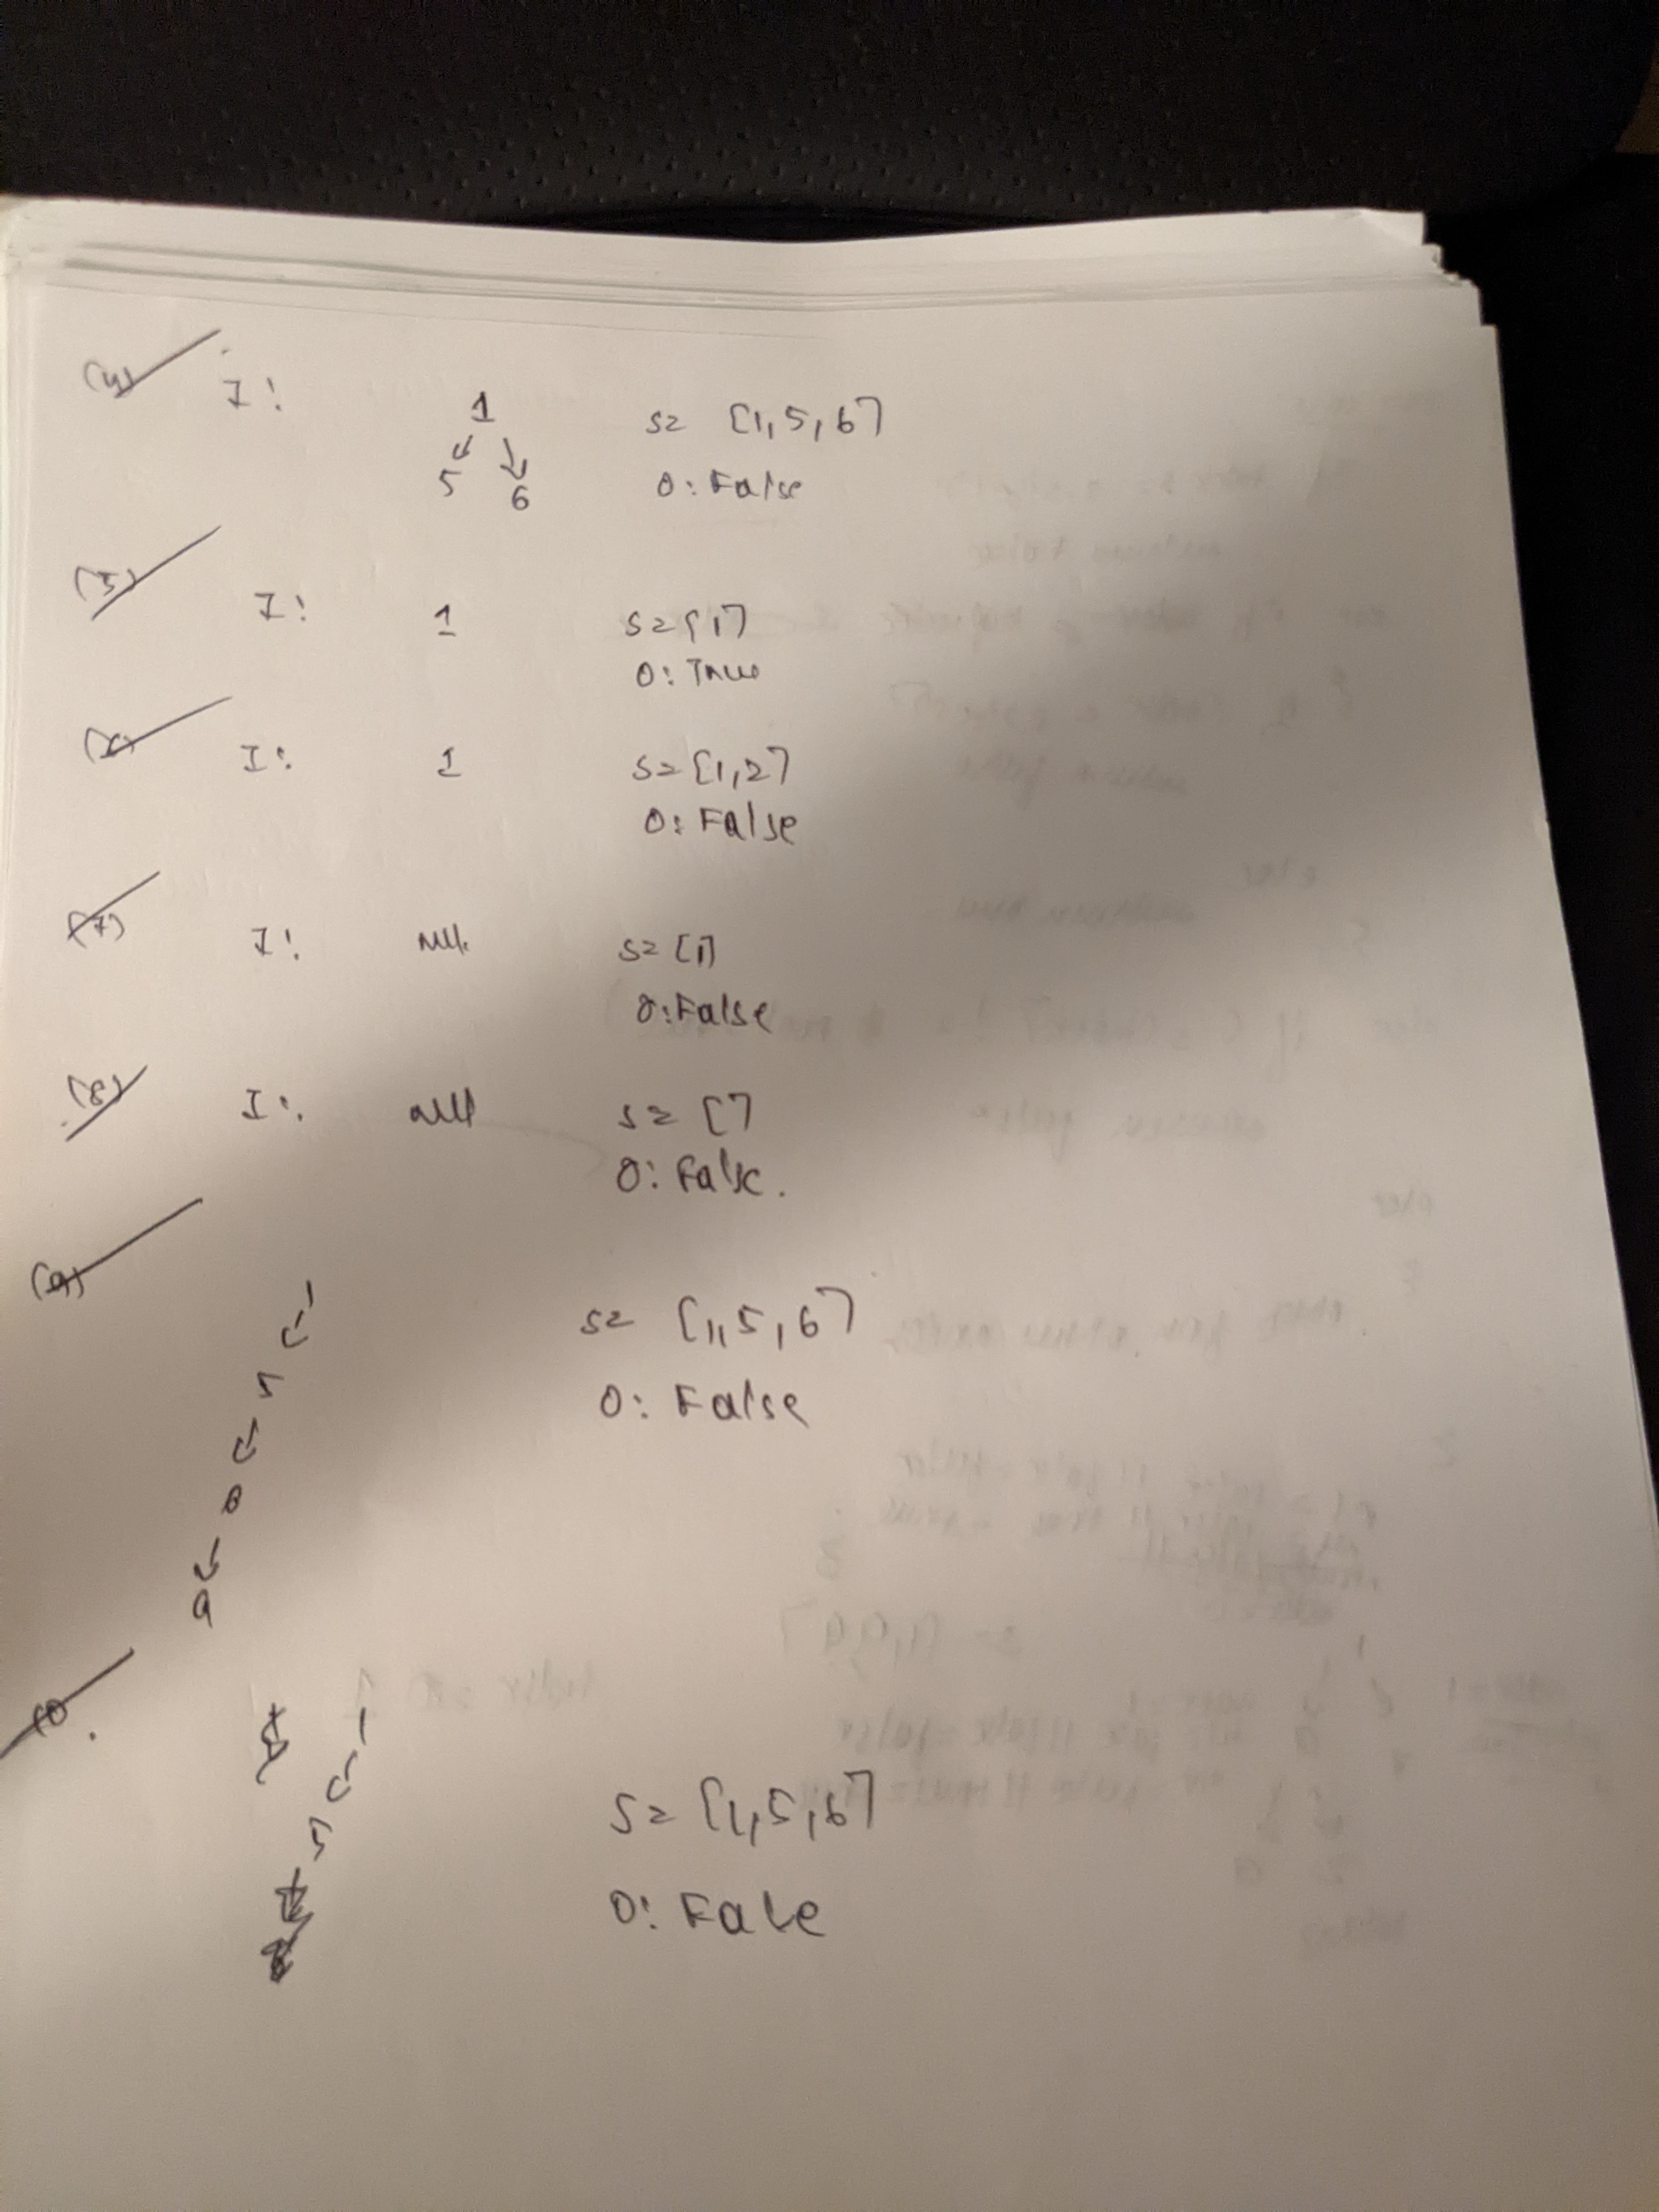 (4) I: 1 s= [1,5,6]
5 6 O: False
(5) I: 1 s=[1]
O: True
(6) I: 1 s=[1,2]
O: False
(7) I: null s= [1]
O: False
(8) I: null s= []
O: False.
(9)
1 s= [1,5,6]
5 O: False
8
9
(10.
1
5 s= [1,5,6]
O: Fale